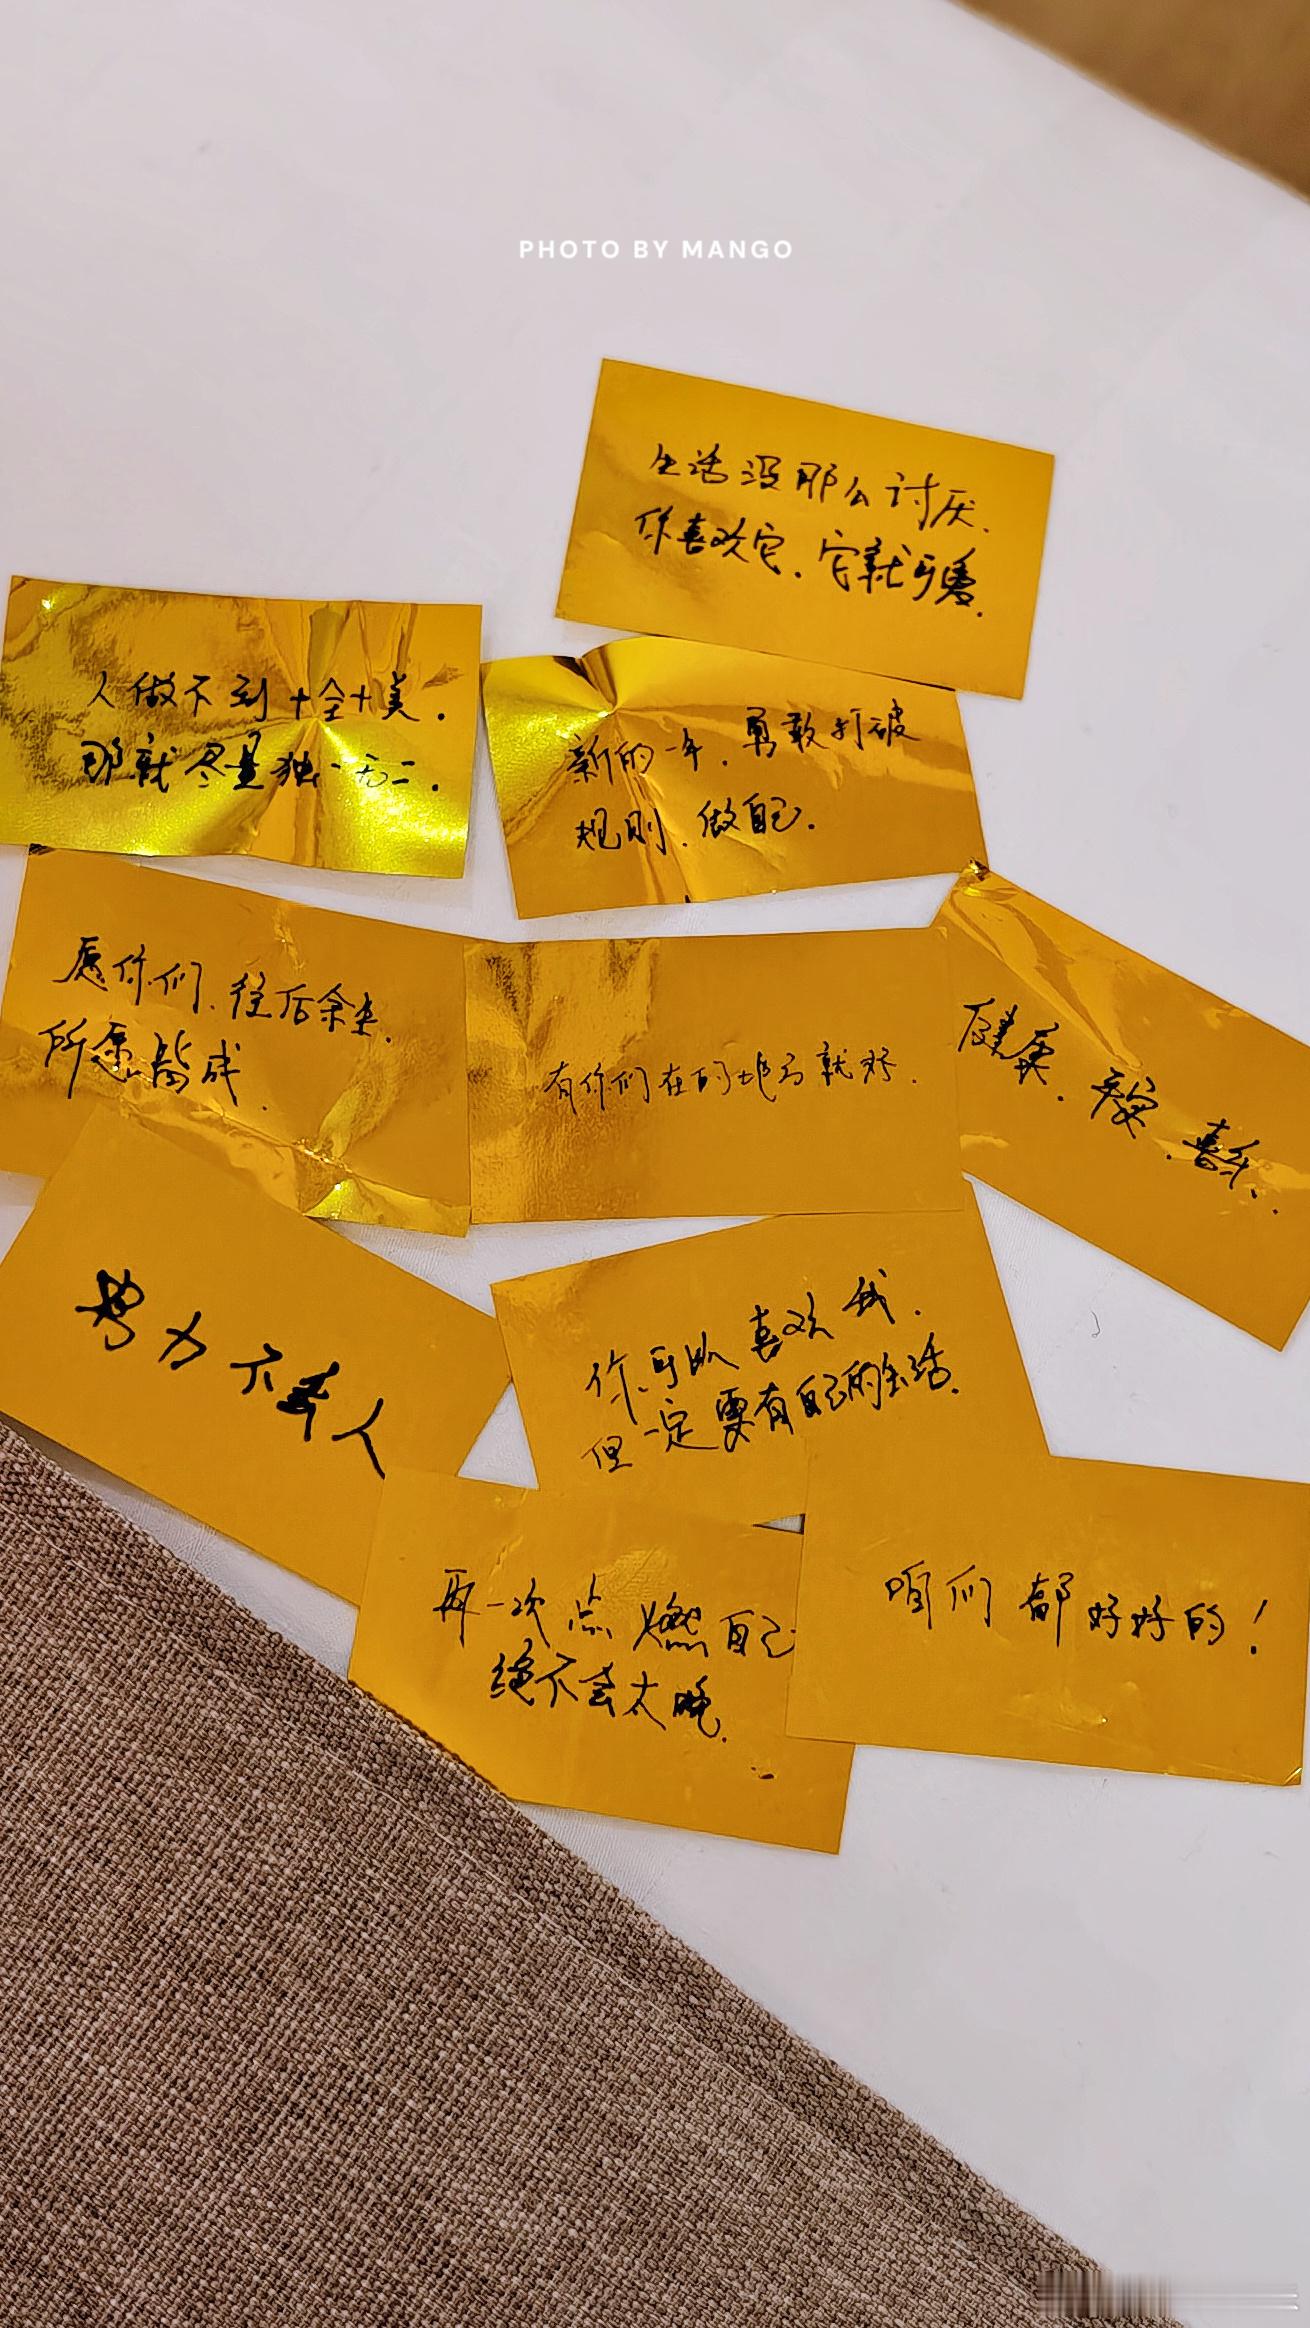 PHOTO BY MANGO
生活没那么讨厌.
你喜欢它.它就可爱.
人做不到十全十美.
那就尽量独一无二.
新的一年.勇敢打破
规则.做自己.
愿你们.往后余生.
所愿皆成.
有你们在的地方就好.
健康.平安.喜乐.
努力不丢人
你可以喜欢我.
但一定要有自己的生活.
再一次点燃自己
绝不会太晚.
咱们都好好的!